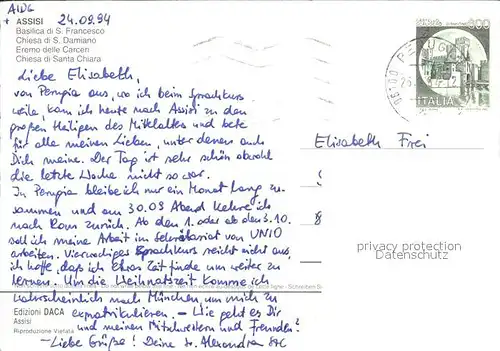 AIDG
+ ASSISI 24.09.94
Basilica di S. Francesco
Chiesa di S. Damiano
Eremo delle Carceri
Chiesa di Santa Chiara
Liebe Elisabeth,
von Perugia aus, wo ich beim Sprachkurs
weile, kam ich heute nach Assisi zu den
großen Heiligen des Mittelalters und bete
für alle meinen Lieben, unter denen auch
Dich meine. Der Tag ist sehr schön obwohl
die letzte Woche nicht so war.
In Perugia bleibe ich nur ein Monat lang zu-
sammen und am 30.09 Abend kehre ich
nach Rom zurück. Ab den 1. oder ab den 3.10.
soll ich meine Arbeit im Sekretariat von UNIO
arbeiten. Vierwochiges Sprachkurs reicht nicht aus,
ich hoffe, daß ich etwas Zeit finde um weiter zu
lernen. Um die Weihnatszeit komme ich
wahrscheinlich nach München um mich zu
expatriikulieren. – Wie geht es Dir
und meinen Mitschwestern und Freunden?
– Liebe Grüße! Deine sr. Alexandra
Elisabeth Frei
300
ITALIA
privacy protection
Datenschutz
Edizioni DACA
Assisi
Riproduzione Vietata